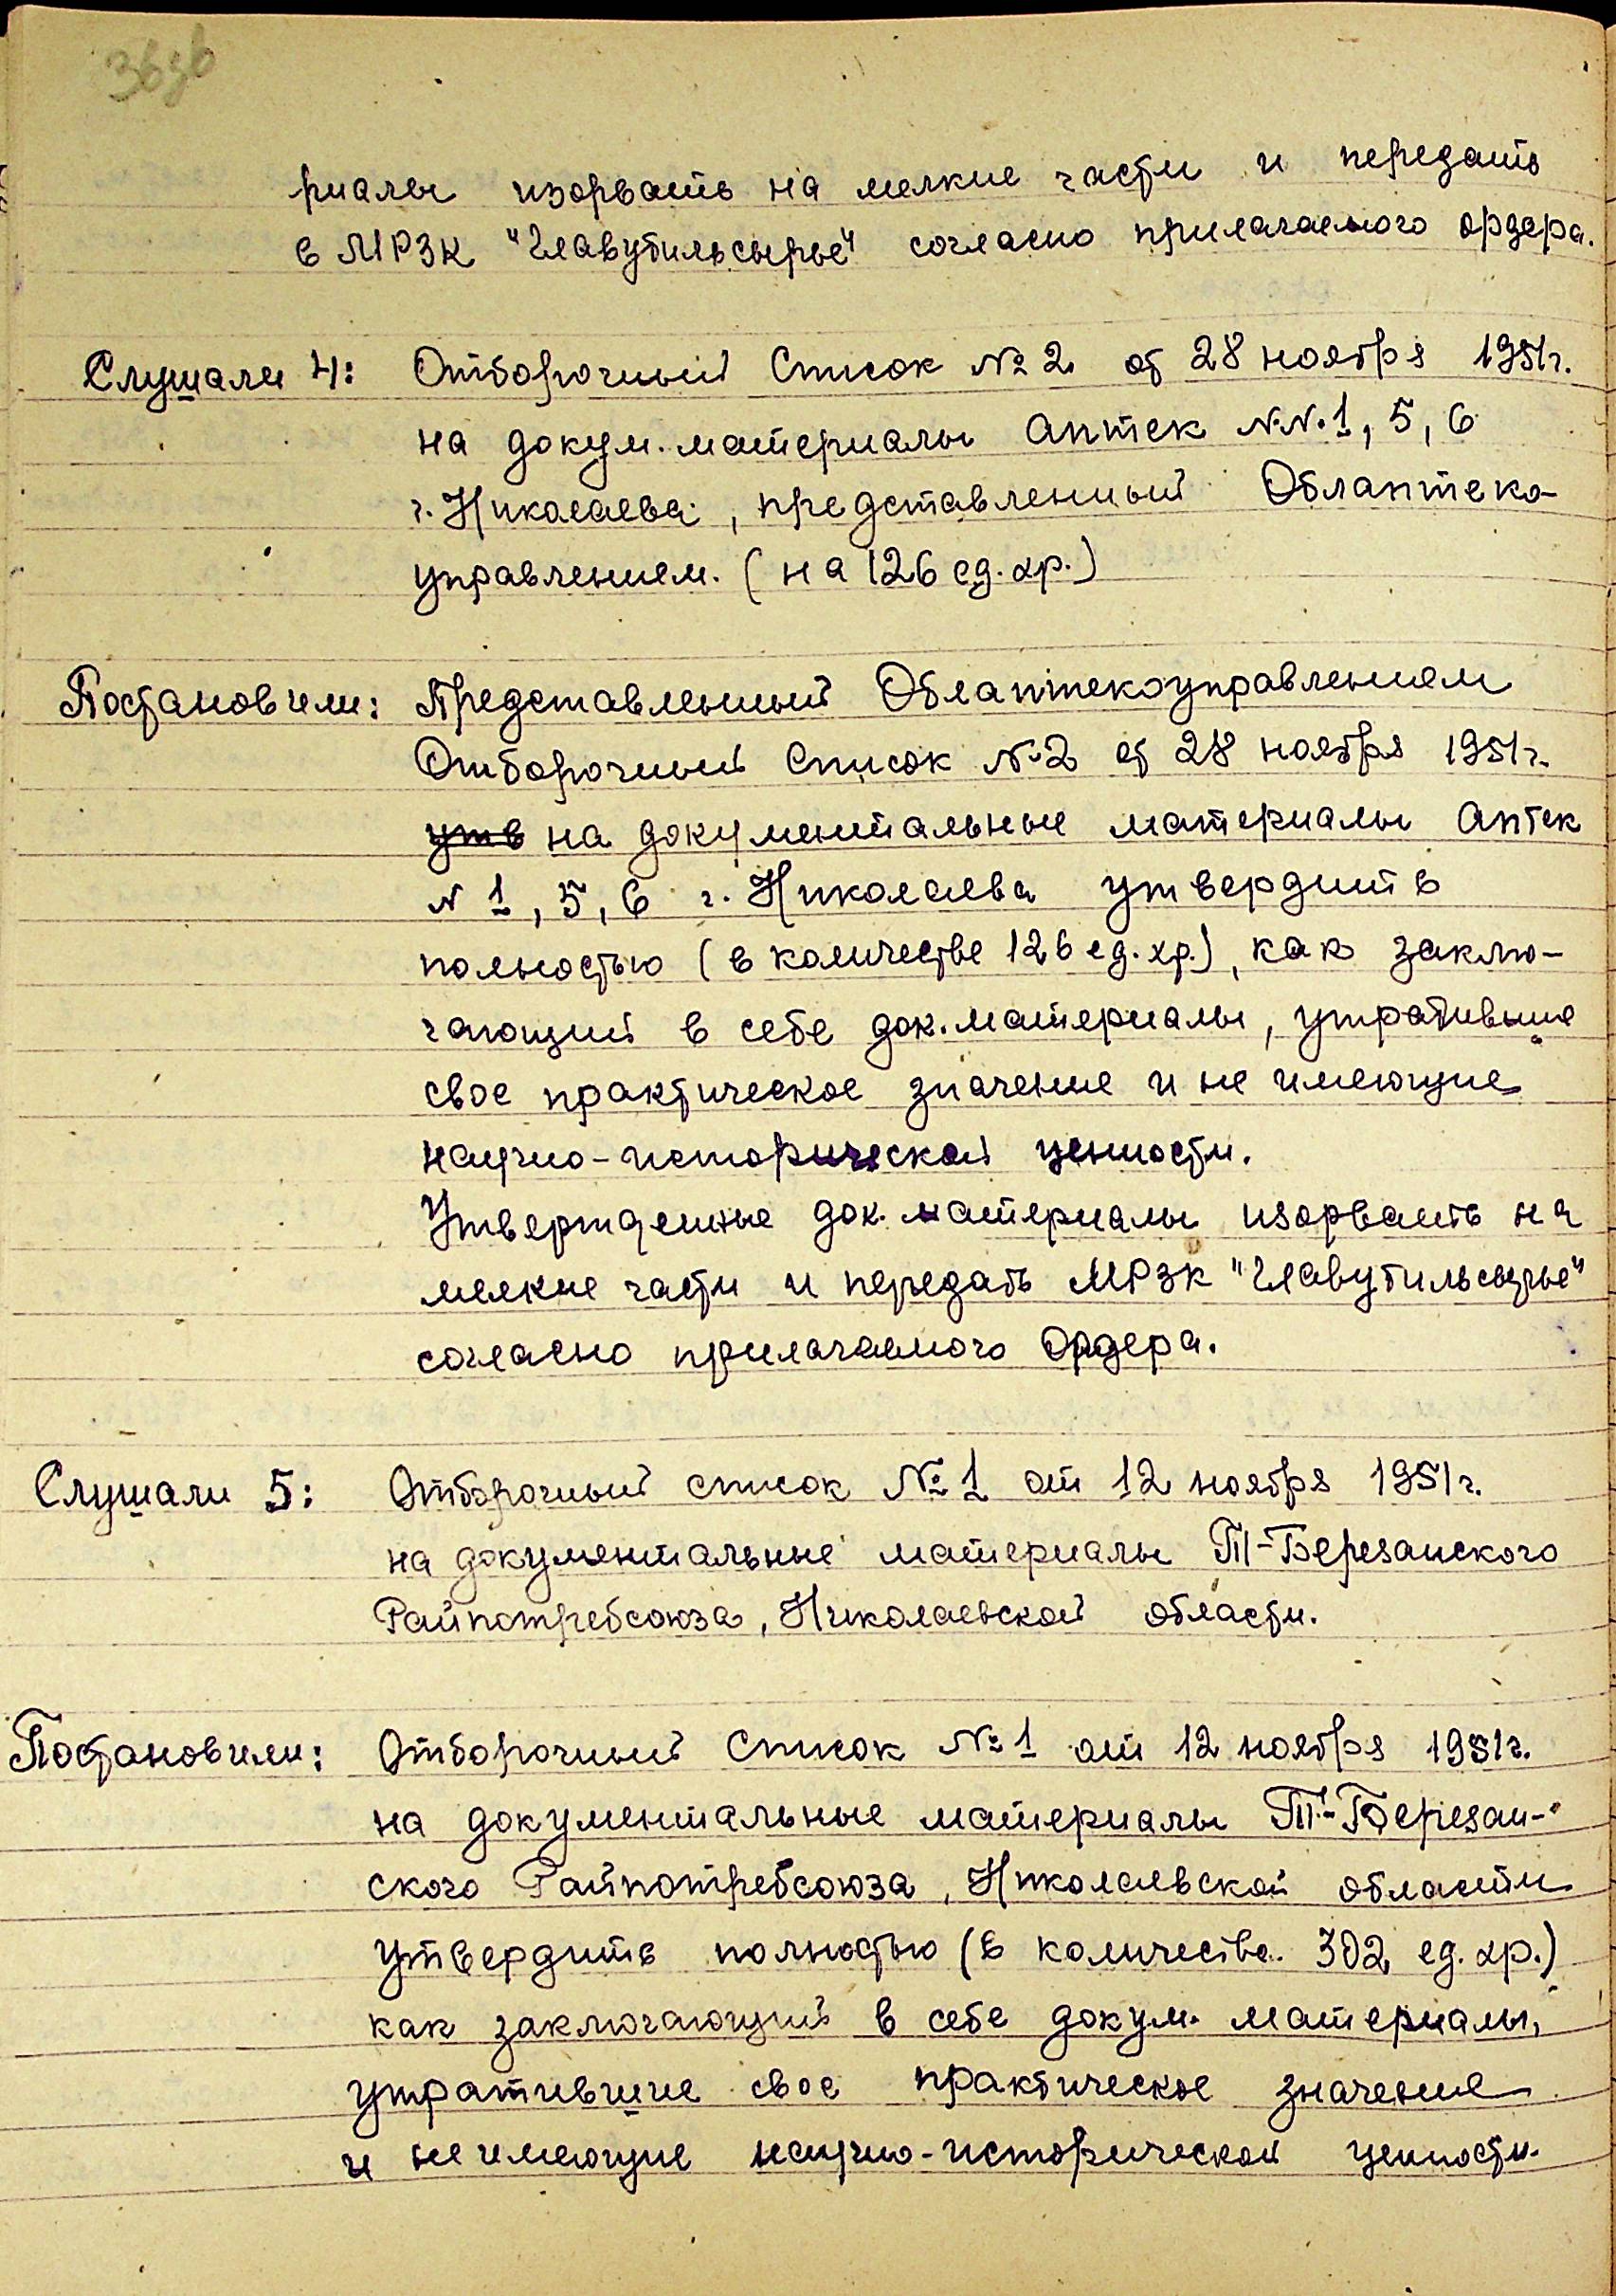 36зв
риалы изорвать на мелкие части и передать
в МРЗК "Главутильсырье" согласно прилагаемого ордера.
Слушали 4: Отборочный Список № 2 от 28 ноября 1951г.
на докум. материалы Аптек N.N. 1, 5, 6
г. Николаева, представленный Облаптеко-
управлением. (на 126 ед. хр.)
Постановили: Представленный Облаптекоуправлением
Отборочный Список № 2 от 28 ноября 1951г.
утв на документальные материалы Аптек
N 1, 5, 6 г. Николаева утвердить
полностью (в количестве 126 ед. хр.), как заклю-
чающий в себе док. материалы, утратившие
свое практическое значение и не имеющие
научно-исторической ценности.
Утвержденные док. материалы изорвать на
мелкие части и передать МРЗК "Главутильсырье"
согласно прилагаемого Ордера.
Слушали 5: Отборочный список № 1 от 12 ноября 1951г.
на документальные материалы Т-Березанского
Райпотребсоюза, Николаевской области.
Постановили: Отборочный Список № 1 от 12 ноября 1951г.
на документальные материалы Т-Березан-
ского Райпотребсоюза, Николаевской области
утвердить полностью (в количестве 302 ед. хр.)
как заключающий в себе докум. материалы,
утратившие свое практическое значение
и не имеющие научно-исторической ценности.